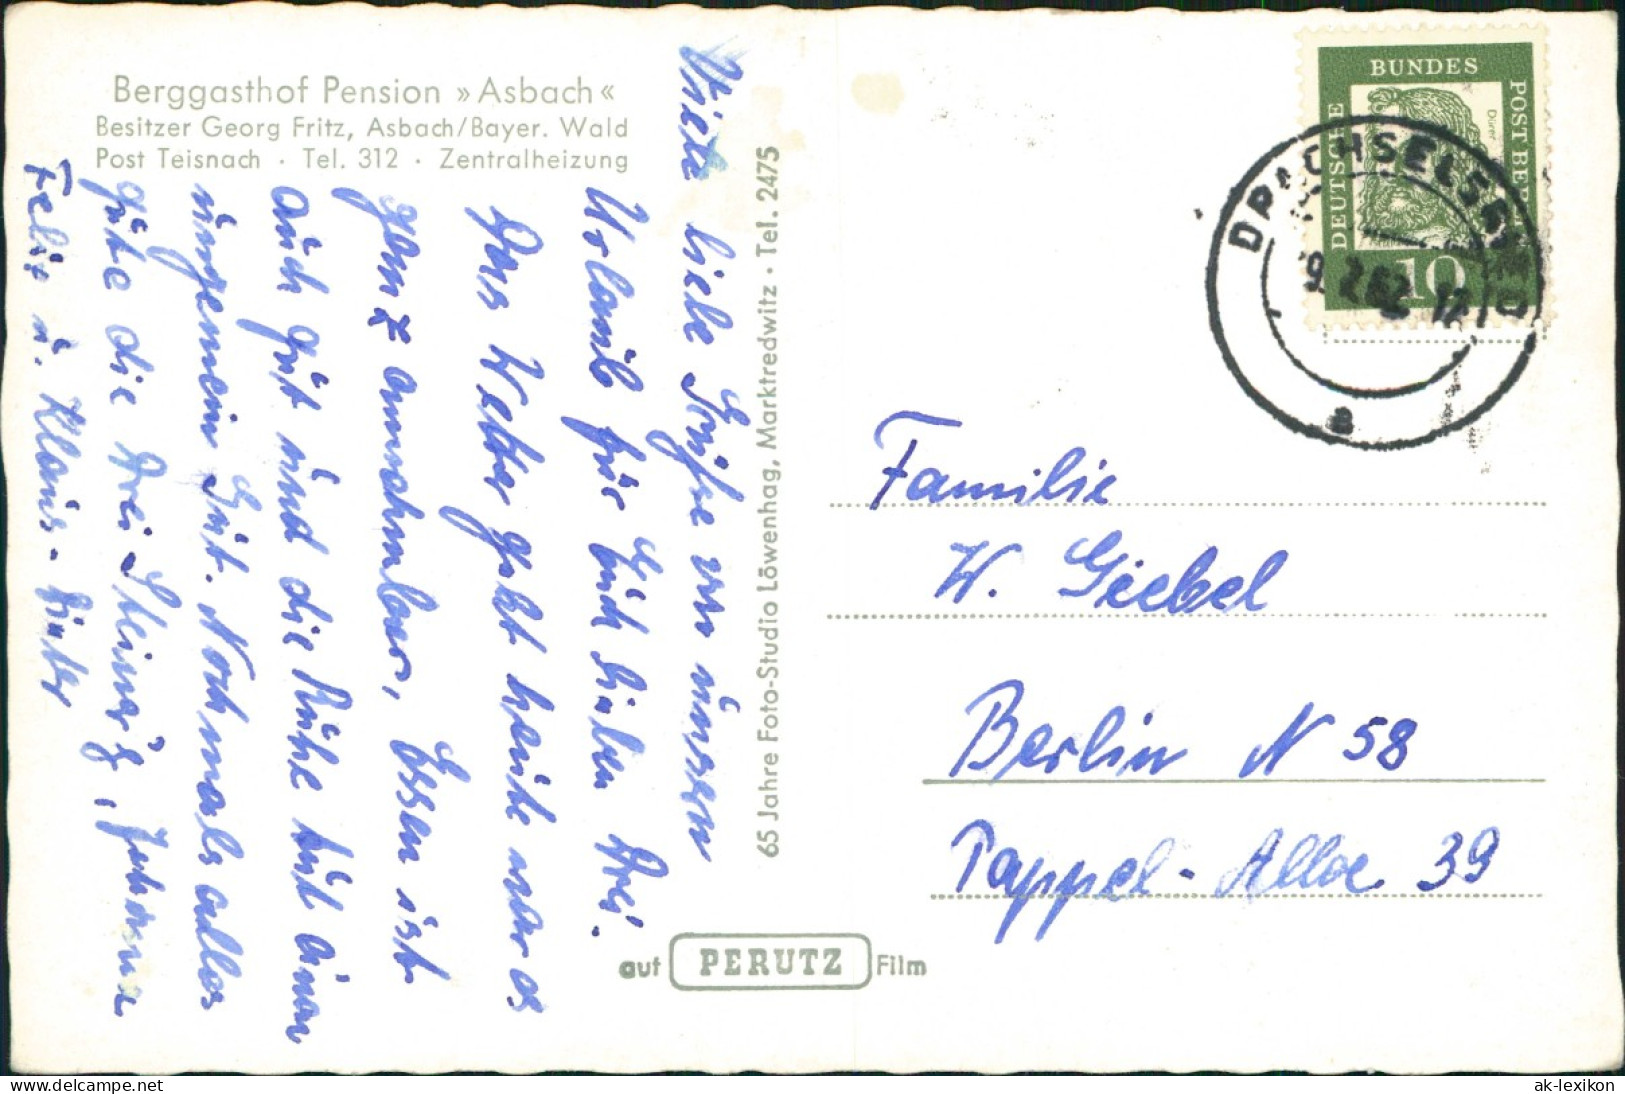 Berggasthof Pension »Asbach«
Besitzer Georg Fritz, Asbach/Bayer. Wald
Post Teisnach · Tel. 312 · Zentralheizung
Viele liebe Grüße von unserm
Urlaub für Euch lieben Drei.
Das Wetter geht heute war es
ganz annehmbar, Essen ist
auch gut und die Ruhe tut einem
ungemein gut. Nochmals alles
gute die drei
Felix u. Klaus-
65 Jahre Foto-Studio Löwenhag, Marktredwitz · Tel. 2475
auf PERUTZ Film
DEUTSCHE BUNDES POST BERLIN
Dürer
10
DRACHSELSRIED
9.7.62-12
a
Familie
W. Giebel
Berlin N 58
Pappel-Allee 39
delcampe.net
ak-lexikon